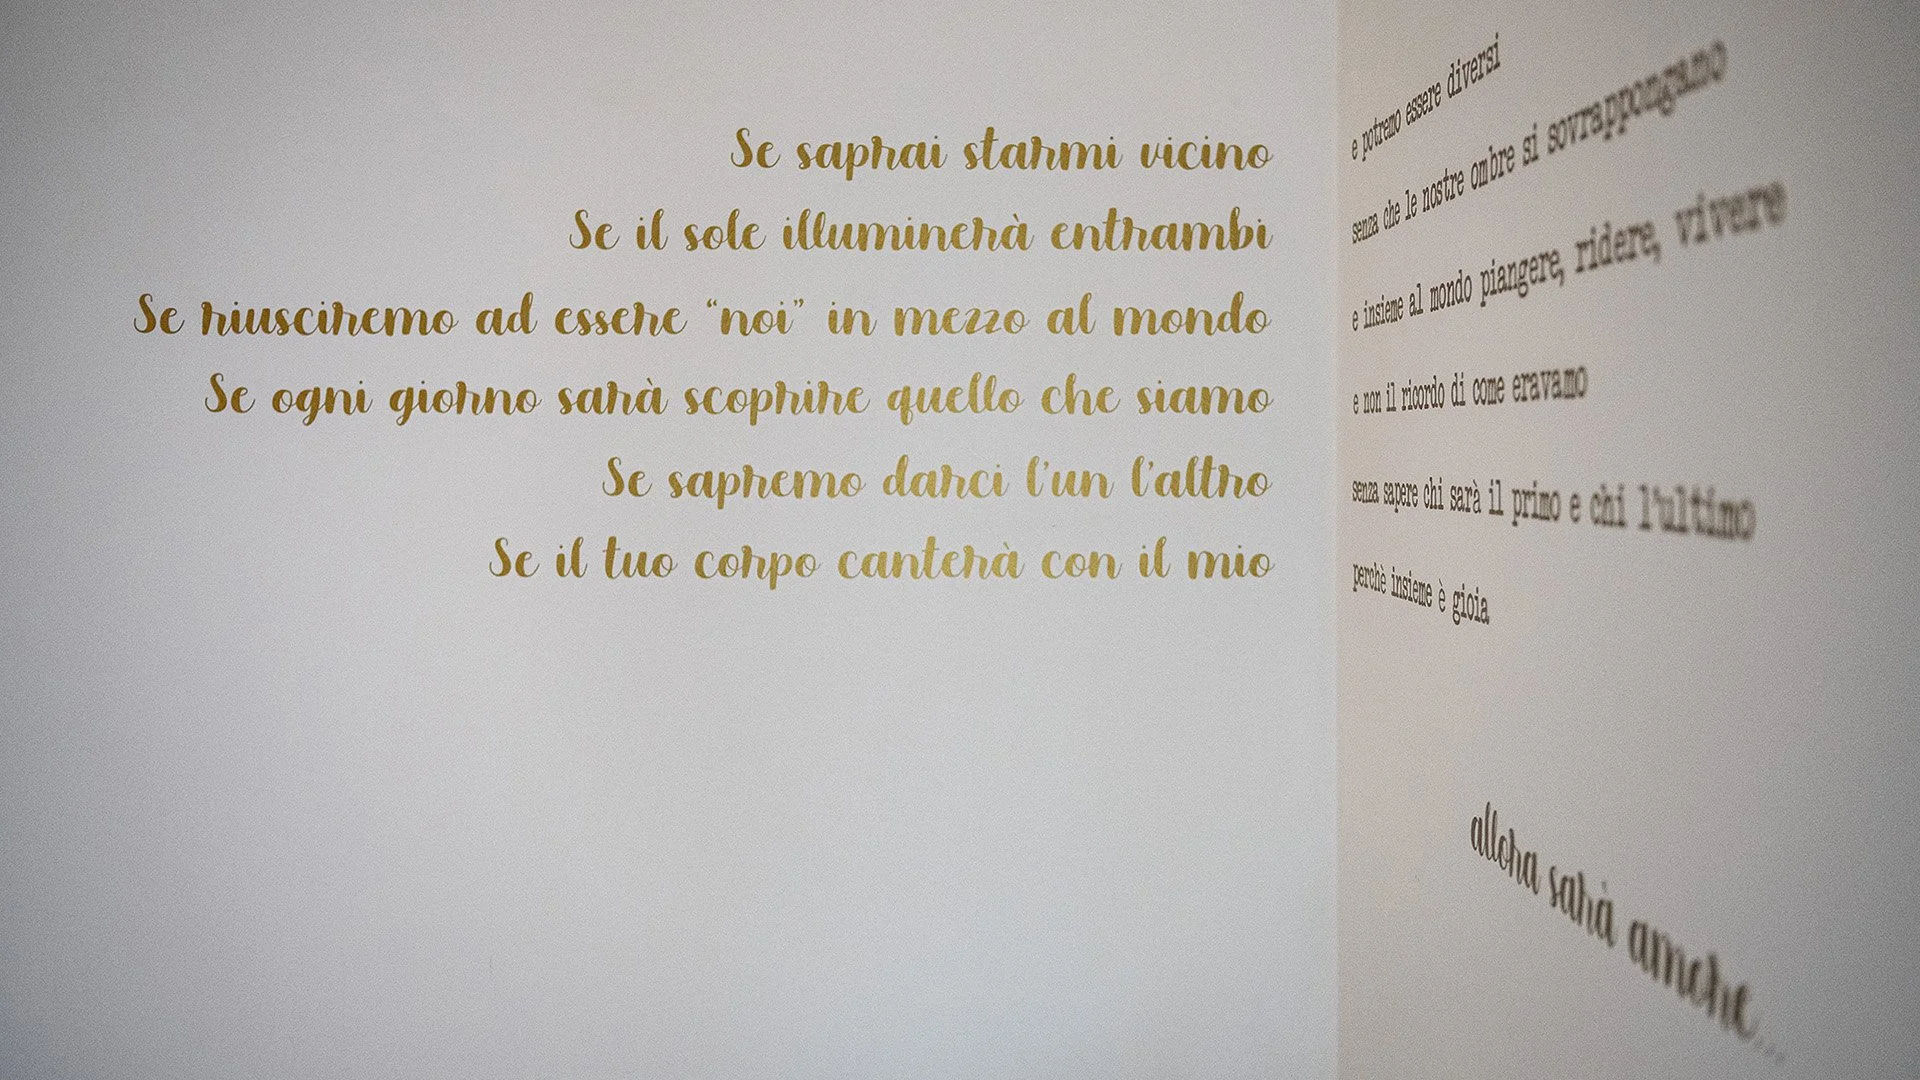 Se saprai starmi vicino
e potremo essere diversi
Se il sole illuminerà entrambi
senza che le nostre ombre si sovrappongamo
Se riusciremo ad essere “noi” in mezzo al mondo
e insieme al mondo piangere, ridere, vivere
Se ogni giorno sarà scoprire quello che siamo
e non il ricordo di come eravamo
Se sapremo darci l'un l'altro
senza sapere chi sarà il primo e chi l'ultimo
Se il tuo corpo canterà con il mio
perchè insieme è gioia
allora sarà amore...